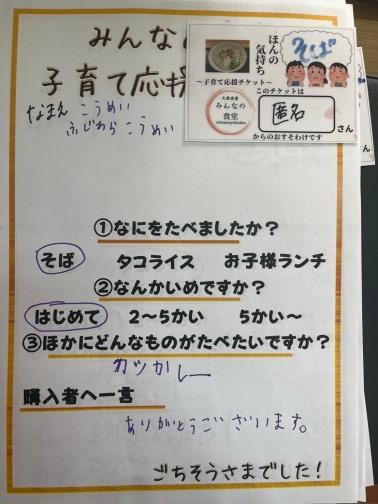 みんなの
子育て応援
なまえ こうめい
ふじわら こうめい
ほんの
気持ち
そば
～子育て応援チケット～
みんなの
食堂
このチケットは
匿名
さん
からのおすそわけです
①なにをたべましたか？
そば タコライス お子様ランチ
②なんかいめですか？
はじめて 2～5かい 5かい～
③ほかにどんなものがたべたいですか？
カツカレー
購入者へ一言
ありがとうございます。
ごちそうさまでした！